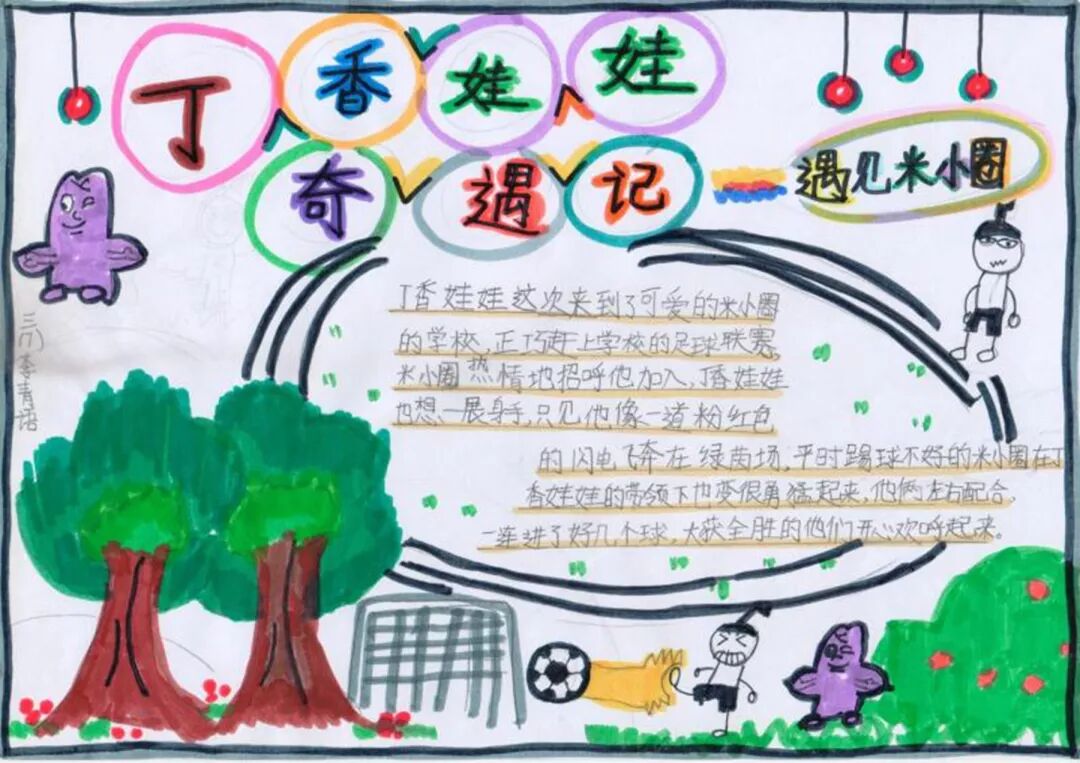 丁香娃娃
奇遇记
遇见米小圈
丁香娃娃这次来到了可爱的米小圈
的学校,正巧赶上学校的足球联赛,
米小圈热情地招呼他加入,丁香娃娃
也想一展身手,只见他像一道粉红色
的闪电飞奔在绿茵场,平时踢球不好的米小圈在丁
香娃娃的带领下也变很勇猛起来,他俩左右配合,
一连进了好几个球,大获全胜的他们开心欢呼起来。
三(7)李青语